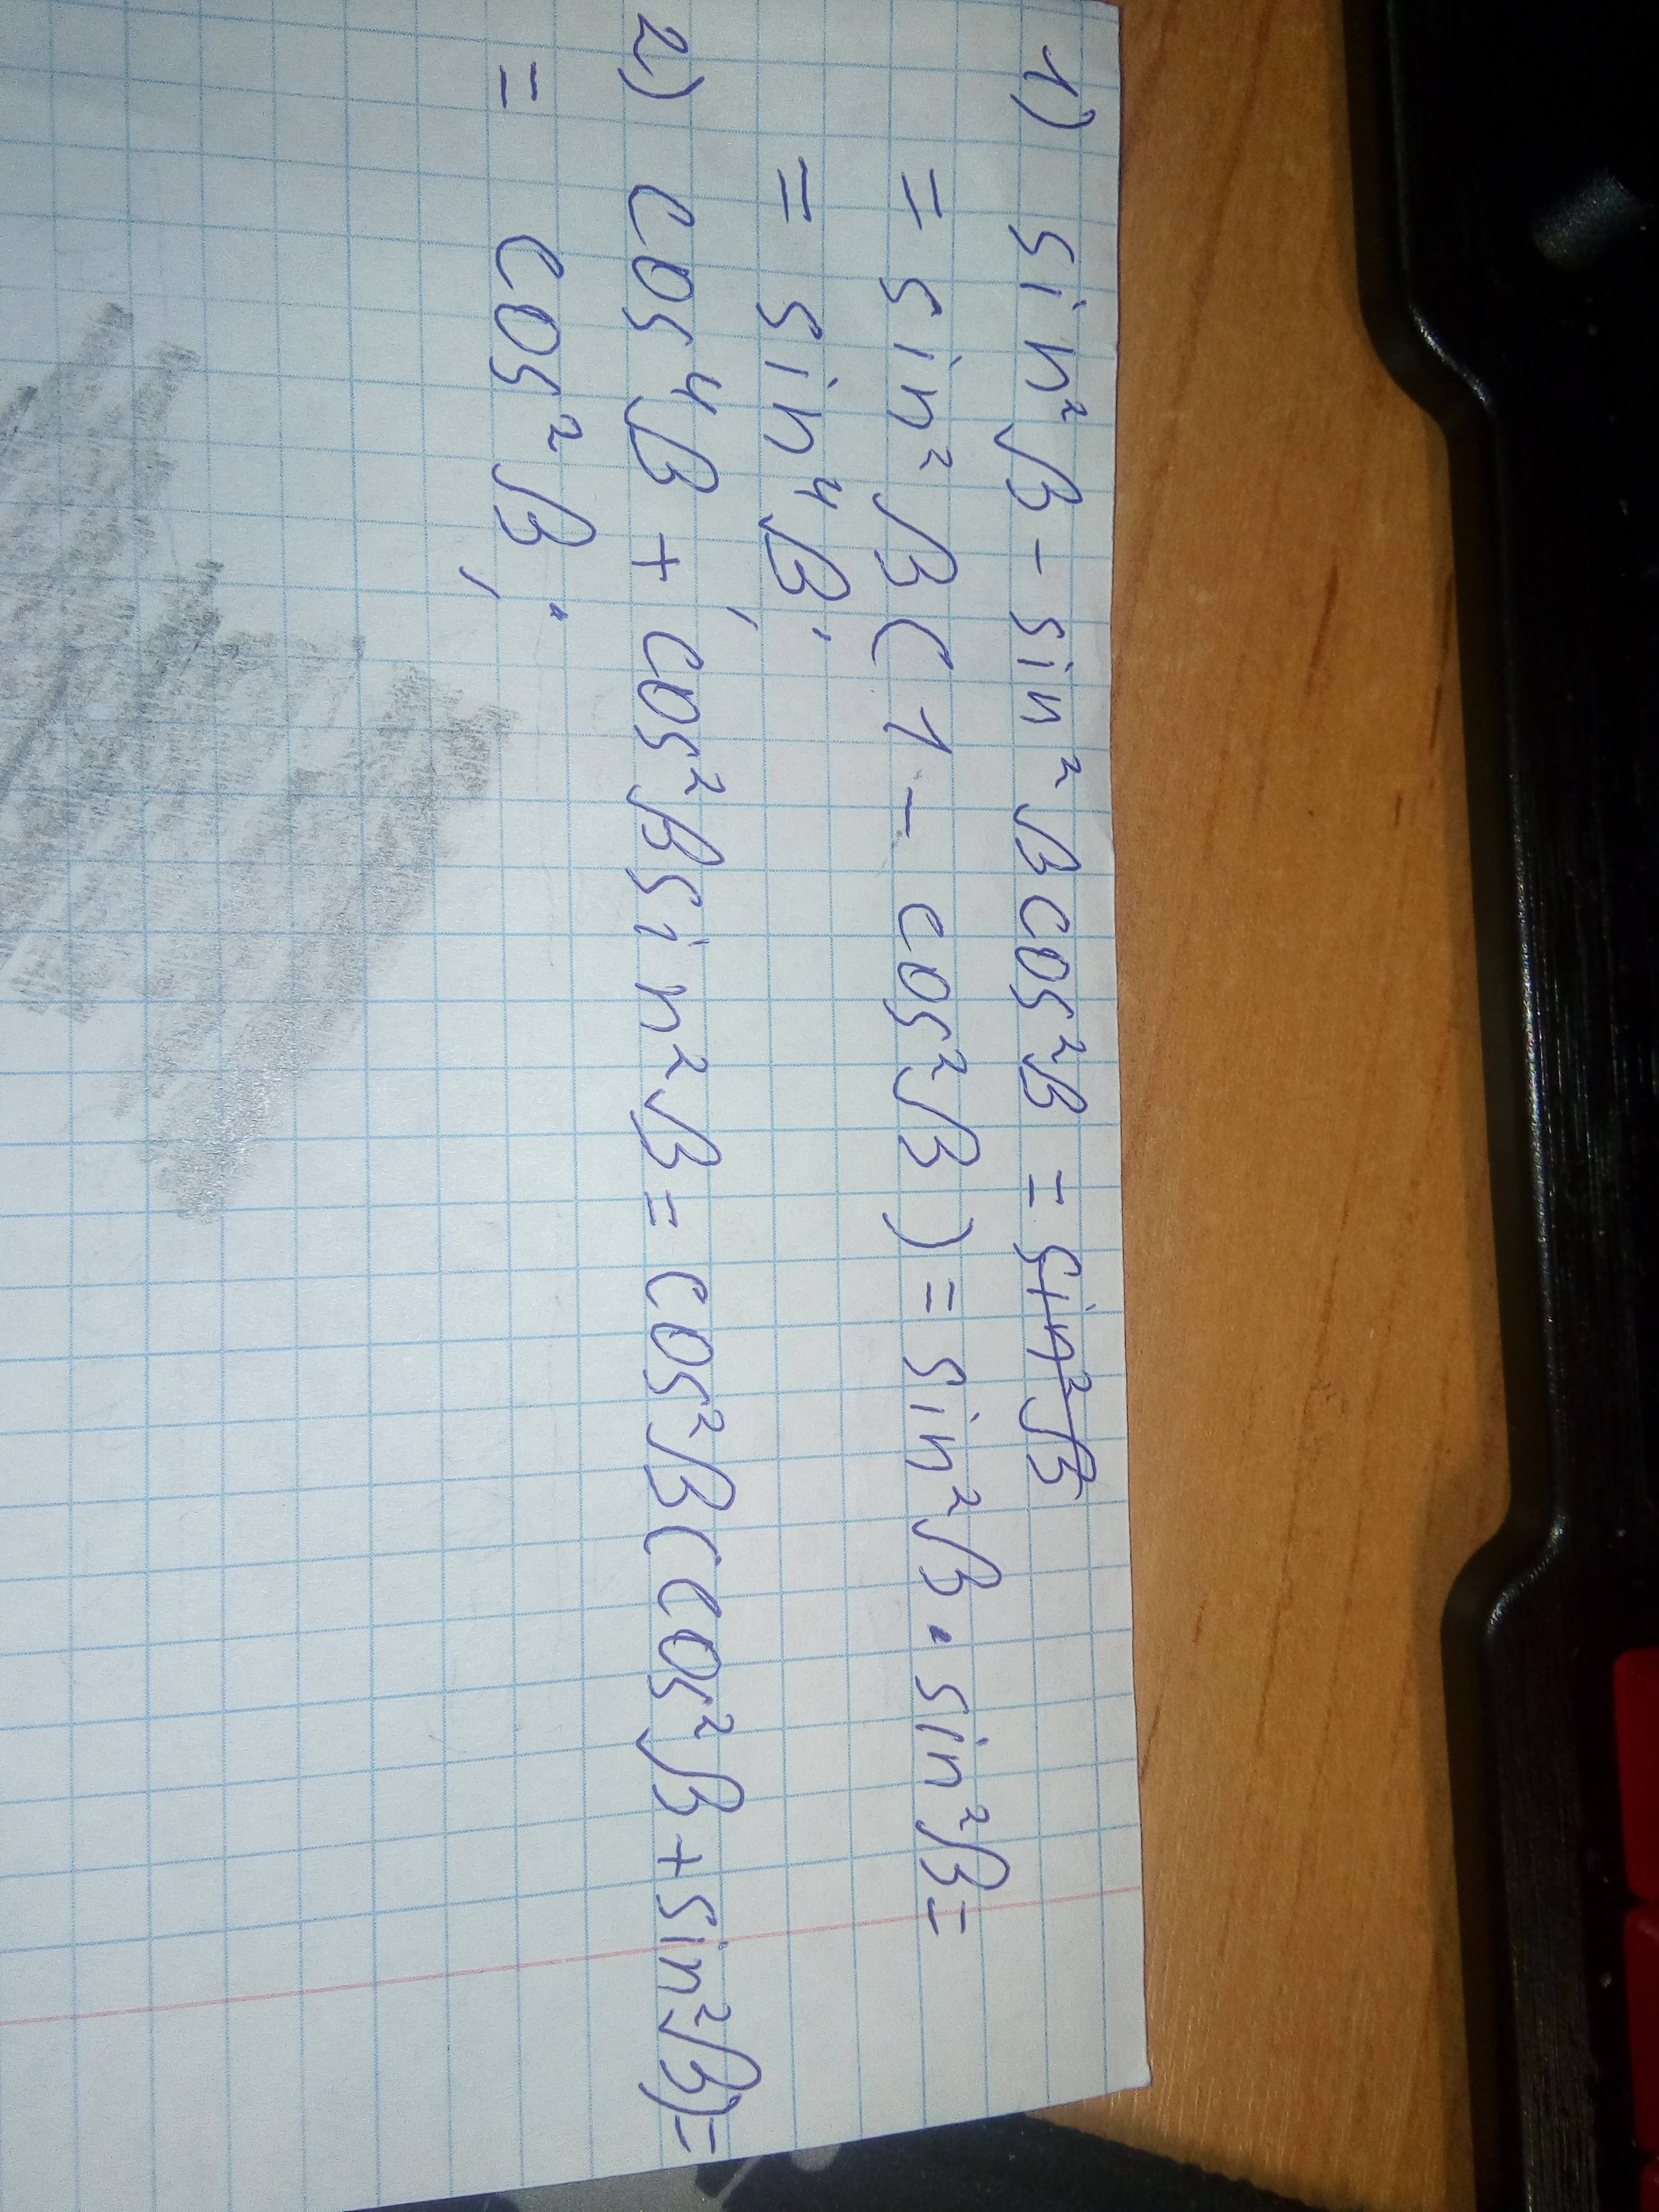 1) sin²β - sin²βcos²β = sin²β
= sin²β(1 - cos²β) = sin²β · sin²β =
= sin⁴β;
2) cos⁴β + cos²βsin²β = cos²β(cos²β + sin²β) =
= cos²β;